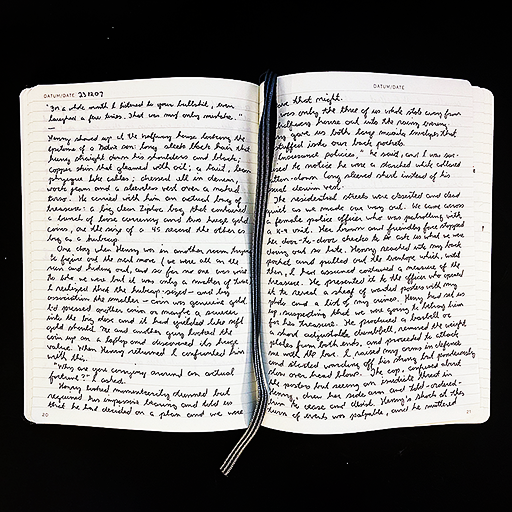 DATUM/DATE 23.12.07
"In a whole month I listened to your bullshit, even
laughed a few times. That was my only mistake."
—
Henry showed up at the halfway house looking the
epitome of a Indian son: long sleek black hair that
hung straight down his shoulders and back;
copper skin that gleamed with oil; a lean,
physique like cables; dressed all in denim,
work jeans and a sleeveless vest over a naked
torso. He carried with him an actual bag of
treasure: a big clear Ziploc bag that contained
a bunch of loose currency and two huge gold
coins, one the size of a 45 record the other as
big as a hubcap.
One day when Henry was in another room, trying
to figure out the next move (we were all on the
run and hiding out, and so far no one was wise
to who we were but it was only a matter of time)
I realized that the hubcap-sized – and by
association the smaller – coin was genuine gold.
I'd pressed another coin or maybe a
into the big one and it had yielded like soft
gold should. Me and another guy looked the
coin up on a laptop and discovered its huge
value. When Henry returned I confronted him
with this.
"Why are you carrying around an actual
fortune?" I asked.
Henry looked momentarily stunned but
regained his impassive bearing and told us
that he had decided on a plan and we were
20
DATUM/DATE
leave that night.
It was only the three of us who stole away from
halfway house out into the evening.
gave us both large manila envelopes that
stuffed into our back pockets.
"Insurance policies," he said, and I was
to notice he wore a starched white collared
button-down long sleeved shirt instead of his
usual denim vest.
The residential streets were deserted and dead
quiet as we made our way out. We came across
a female police officer who was patrolling with
a K-9 unit. Her brown and friendly face stopped
her door-to-door checks to ask us what we were
doing out so late. Henry reached into my back
pocket and pulled out the envelope which, until
then, I had assumed contained a measure of the
treasure. He presented it to the officer who opened
it to reveal a sheaf of wanted posters with my
photo and a list of my crimes. Henry had set us
up, suspecting that we were going to betray him
for his treasure. He produced a barbell or
a short adjustable dumbbell, removed the weight
plates from both ends, and proceeded to attack
me with the bar. I raised my arms in defence
and started warding off his strong but ponderously
slow over head blows. The cop, confused about
the posters but seeing an immediate threat in
Henry, drew her side arm and told – ordered –
him to cease and desist. Henry's shock at this
turn of events was palpable, and he muttered
21